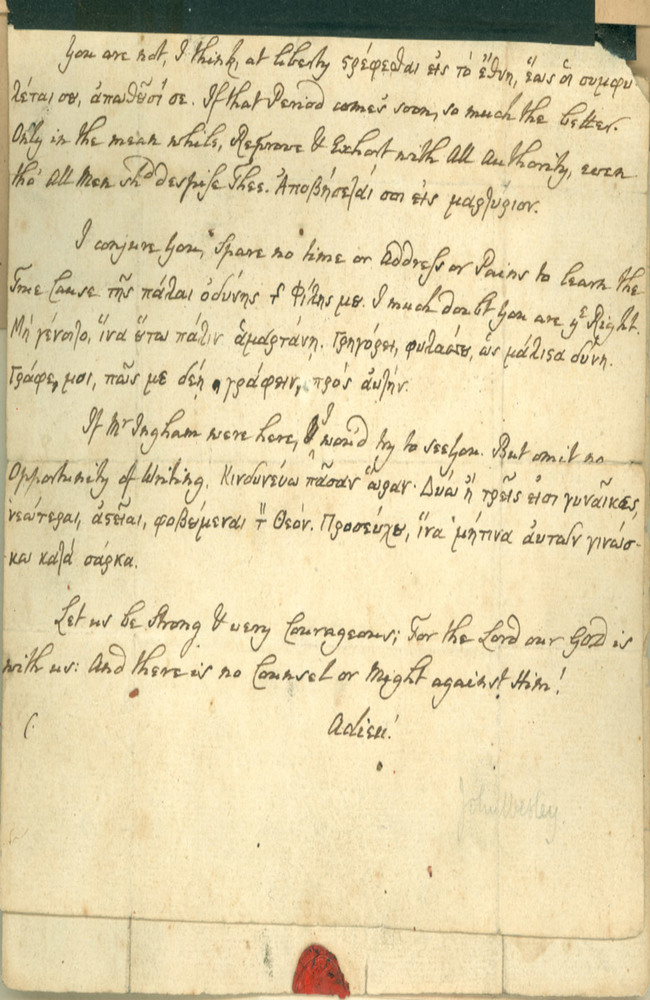 You are not, I think, at liberty ϛρέφεσθαι εἰς τὰ ἔθνη, ἕως οἱ συμφυ
λέται σȣ, ἀπωθῶσί σε. If that Period comes soon, so much the better.
Only in the mean while, Reprove & Exhort with All Authority, even
tho' All Men shd despise Thee. Ἀποβήσεταί σοι εἰς μαρτύριον.
I conjure You, Spare no time or Address or Pains to learn the
True Cause τῆς πάλαι ὀδύνης τ Φίλης μȣ. I much doubt You are ye Right.
Μὴ γένοιτο, ἵνα ȣ̔́τω πάλιν ἁμαρτάνῃ. Γρηγόρει, φύλασσε, ὡς μάλιϛα δύνῃ.
Γράφε μοι, πῶς με δέῃ γράφειν πρὸς αὐτήν.
If Mr Ingham were here, I wou'd try to see You. But omit no
Opportunity of Writing. Κινδυνεύω πᾶσαν ὥραν. Δύω ἢ τρεῖς εἰσι γυναῖκες,
νεώτεραι, ἀϛεῖαι, φοβȣ́μεναι τ Θεόν. Προσεύχȣ, ἵνα μή τινα αὐτῶν γινώσ-
κω κατὰ σάρκα.
Let us be Strong & very Courageous; For the Lord our God is
with us: And there is no Counsel or Might against Him!
Adieu!
John Wesley